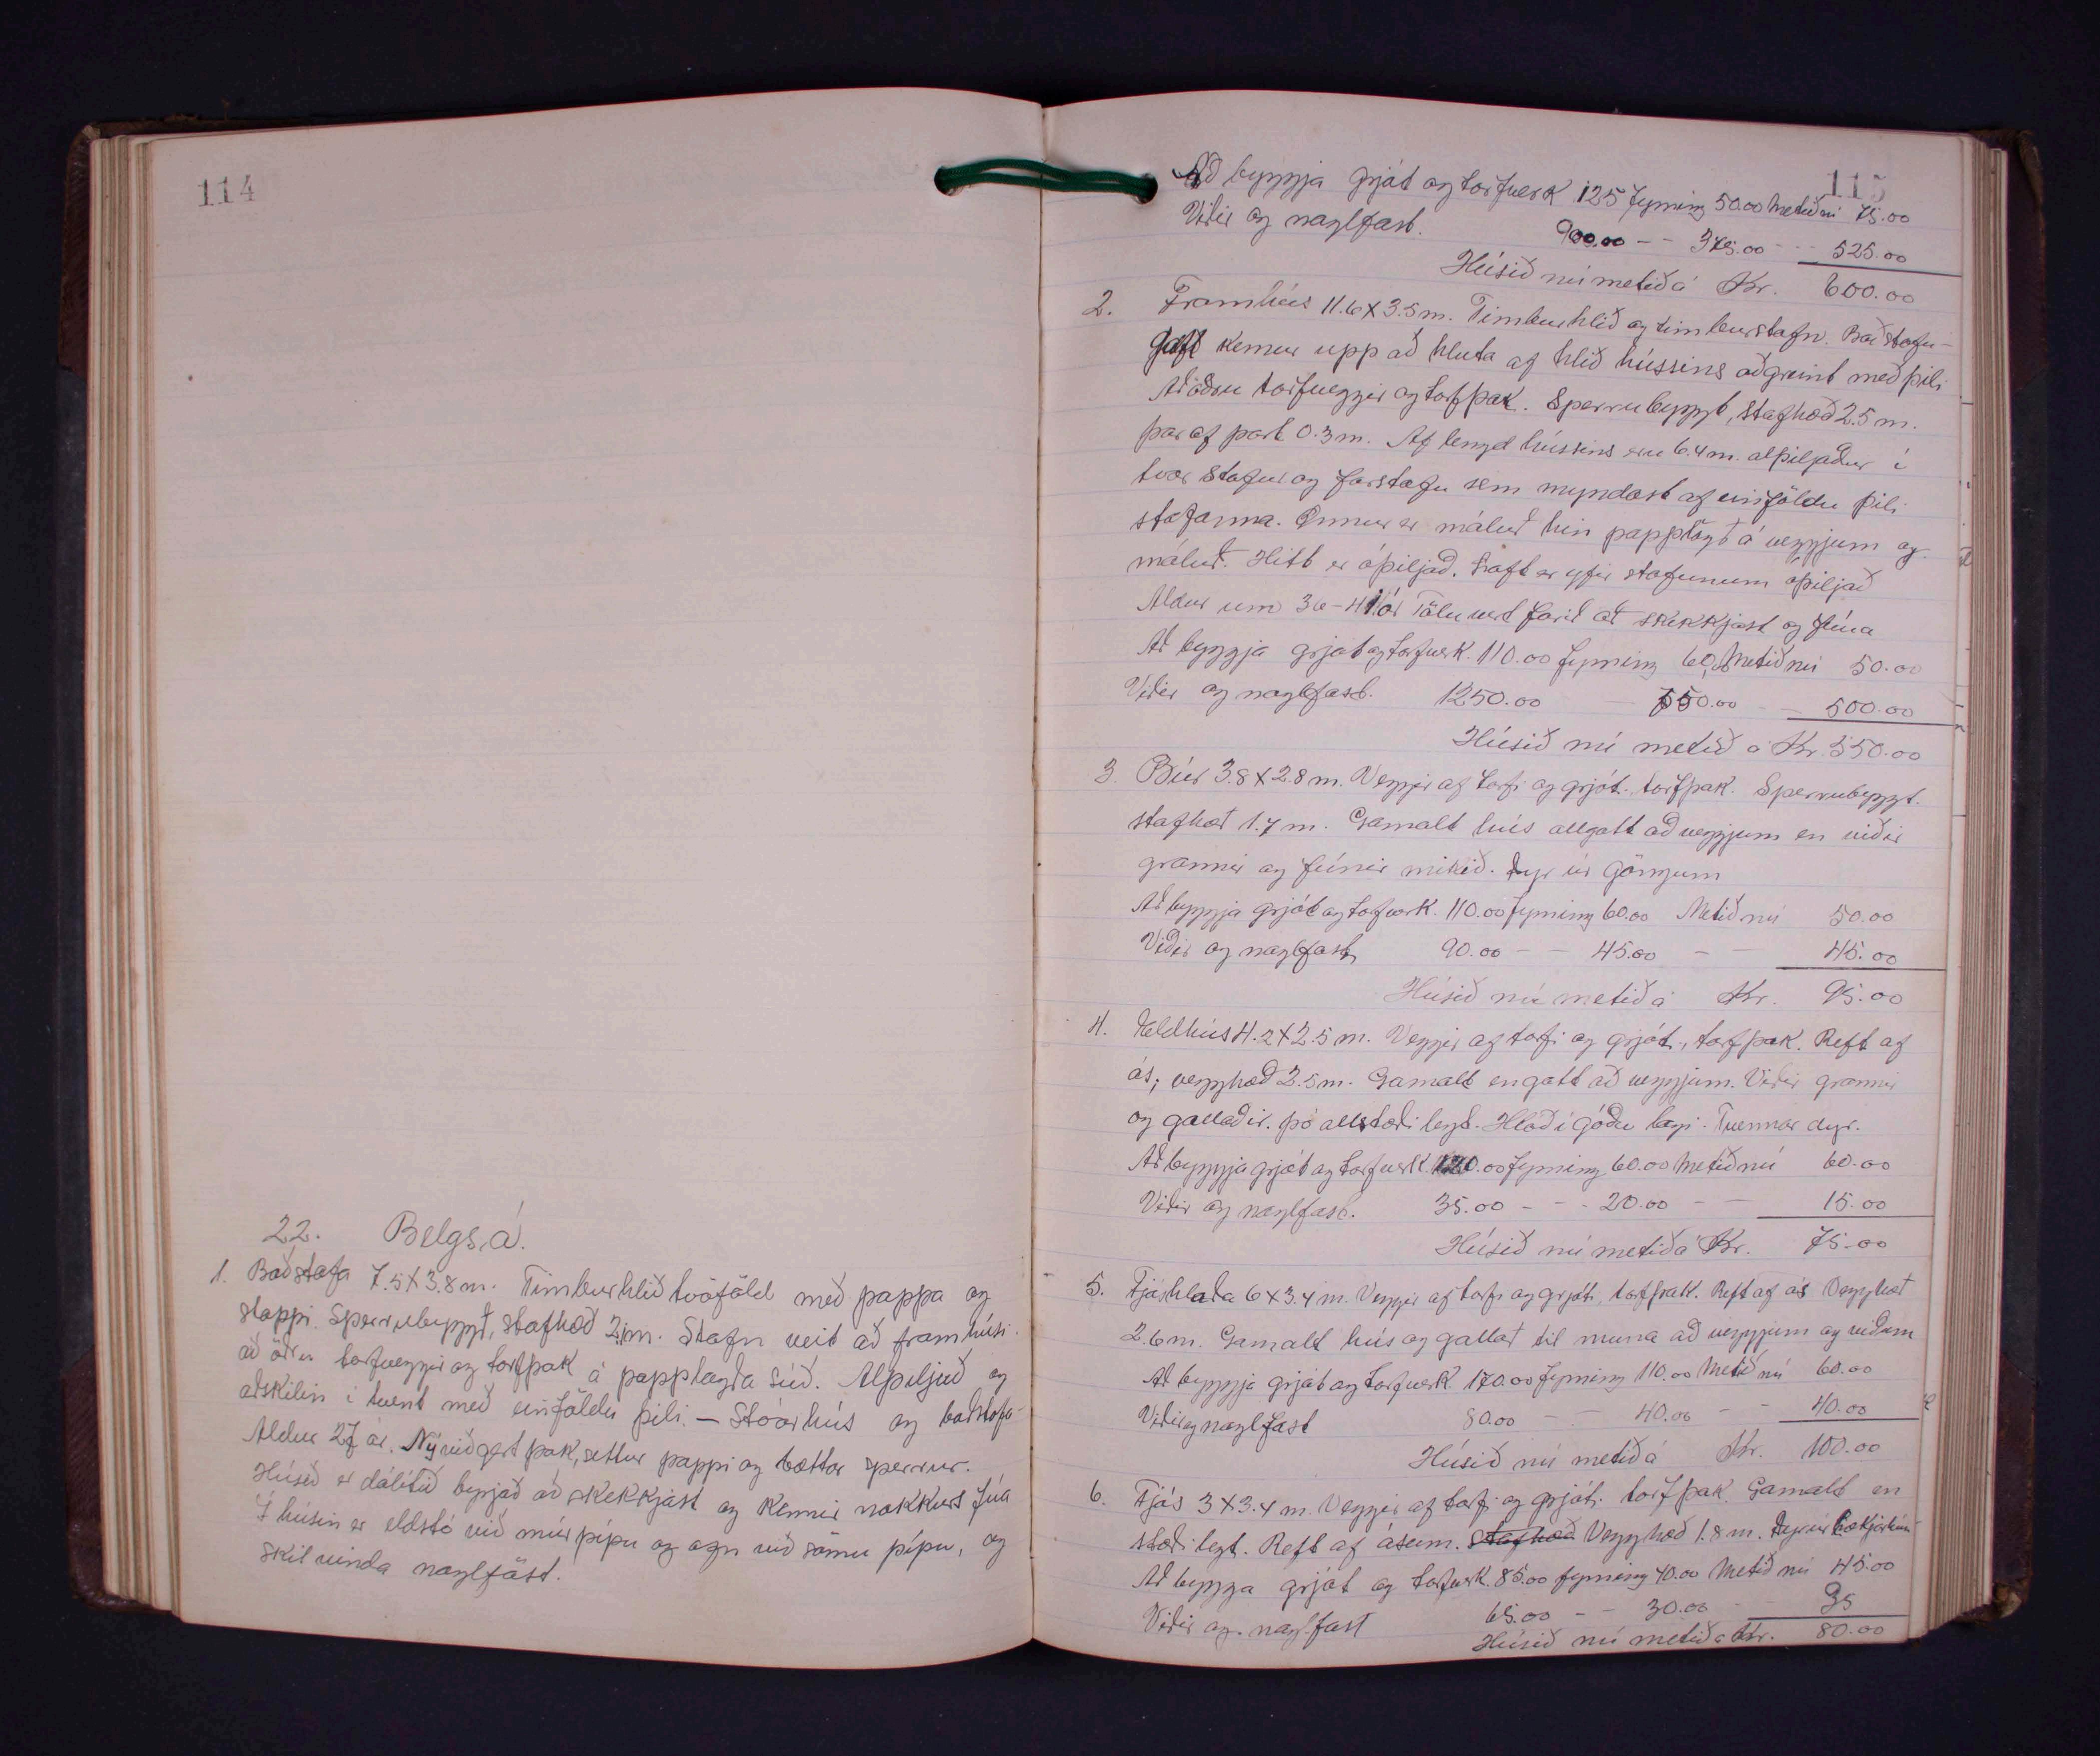 114
22. Belgsá.
1. Baðstofa 7.5 x 3.8 m. Timburhlið tvöföld með pappa og
stoppi. Sperrubyggt, stafhæð 2.1 m. Stafn veit að framhúsi.
að öðru torfveggir og torfþak á papplagða súð. Alþiljuð og
aðskilin í tvent með einföldu þili. — Stóarhús og baðstofa
Aldur 27 ár. Ný viðgert þak, settur pappi og bættar sperrur.
Húsið er dálítið byrjað að skekkjast og kennir nokkurs fúa
Í húsin er eldstó við múrpípu og ogn við sömu pípu, og
skilvinda naglföst.
115
Að byggja grjót og torfverk 125 fyrning 50.00 Metið nú 75.00
Viðir og naglfast. 900.00 - - 375.00 - - 525.00
Húsið nú metið á Kr. 600.00
2. Framhús 11.6 x 3.5 m. Timburhlið og timburstafn. Baðstofu-
gafl kemur upp að hluta af hlið hússins aðgreint með þili
Að öðru torfveggir og torfþak. Sperrubyggt, stafhæð 2.5 m.
þar af port 0.3 m. Af lengd hússins eru 6.4 m. alþiljaður í
tvær stofur og forstofu sem myndast af einföldu þili
stofanna. Önnur er máluð hin papplögð á veggjum og
máluð. Hitt er óþiljað. Loft er yfir stofunum óþiljað
Aldur um 36-41 ár Tölu verð farið að skekkjast og fúna
Að byggja grjót og torfverk. 110.00 fyrning 60.00 Metið nú 50.00
Viðir og naglfast. 1250.00 - 750.00 - - 500.00
Húsið nú metið á Kr. 550.00
3. Búr 3.8 x 2.8 m. Veggir af torfi og grjóti, torfþak. Sperrubyggt.
stafhæð 1.7 m. Gamalt hús allgott að veggjum en viðir
grannir og fúnir mikið. Dyr úr göngum
Að byggja grjót og torfverk. 110.00 fyrning 60.00 Metið nú 50.00
Viðir og naglfast 90.00 - - 45.00 - 45.00
Húsið nú metið á Kr. 95.00
4. Eldhús 4.2 x 2.5 m. Veggir af torfi og grjóti, torfþak. Reft af
ás, vegghæð 2.5 m. Gamalt en gott að veggjum. Viðir grannir
og gallaðir. þó allstæðilegt. Hlóð í góðu lagi. Tvennar dyr.
Að byggja grjót og torfverk 120.00 fyrning 60.00 Metið nú 60.00
Viðir og naglfast. 35.00 - - 20.00 - - 15.00
Húsið nú metið á Kr. 75.00
5. Fjóshlaða 6 x 3.4 m. Veggir af torfi og grjóti, torfþak. Reft af ás Vegghæð
2.6 m. Gamalt hús og gallað til muna að veggjum og viðum
Að byggja grjót og torfverk 170.00 fyrning 110.00 Metið nú 60.00
Viðir og naglfast 80.00 - - 40.00 - - 40.00
Húsið nú metið á Kr. 100.00
6. Fjós 3 x 3.4 m. Veggir af torfi og grjóti. torfþak. Gamalt en
stæðilegt. Reft af ásum. Stafhæð Vegghæð 1.8 m. Dyr úr
Að bygga grjót og torfverk. 85.00 fyrning 40.00 Metið nú 45.00
Viðir og naglfast 65.00 - - 30.00 - - 35
Húsið nú metið á Kr. 80.00